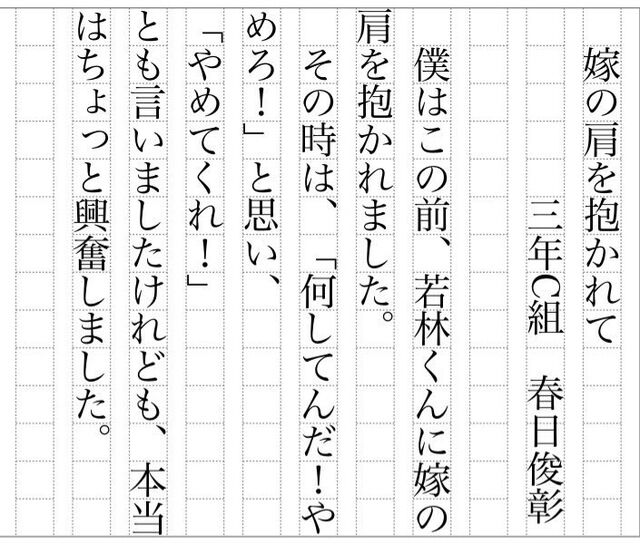 嫁の肩を抱かれて
三年C組　春日俊彰
僕はこの前、若林くんに嫁の
肩を抱かれました。
その時は、「何してんだ！や
めろ！」と思い、
「やめてくれ！」
とも言いましたけれども、本当
はちょっと興奮しました。